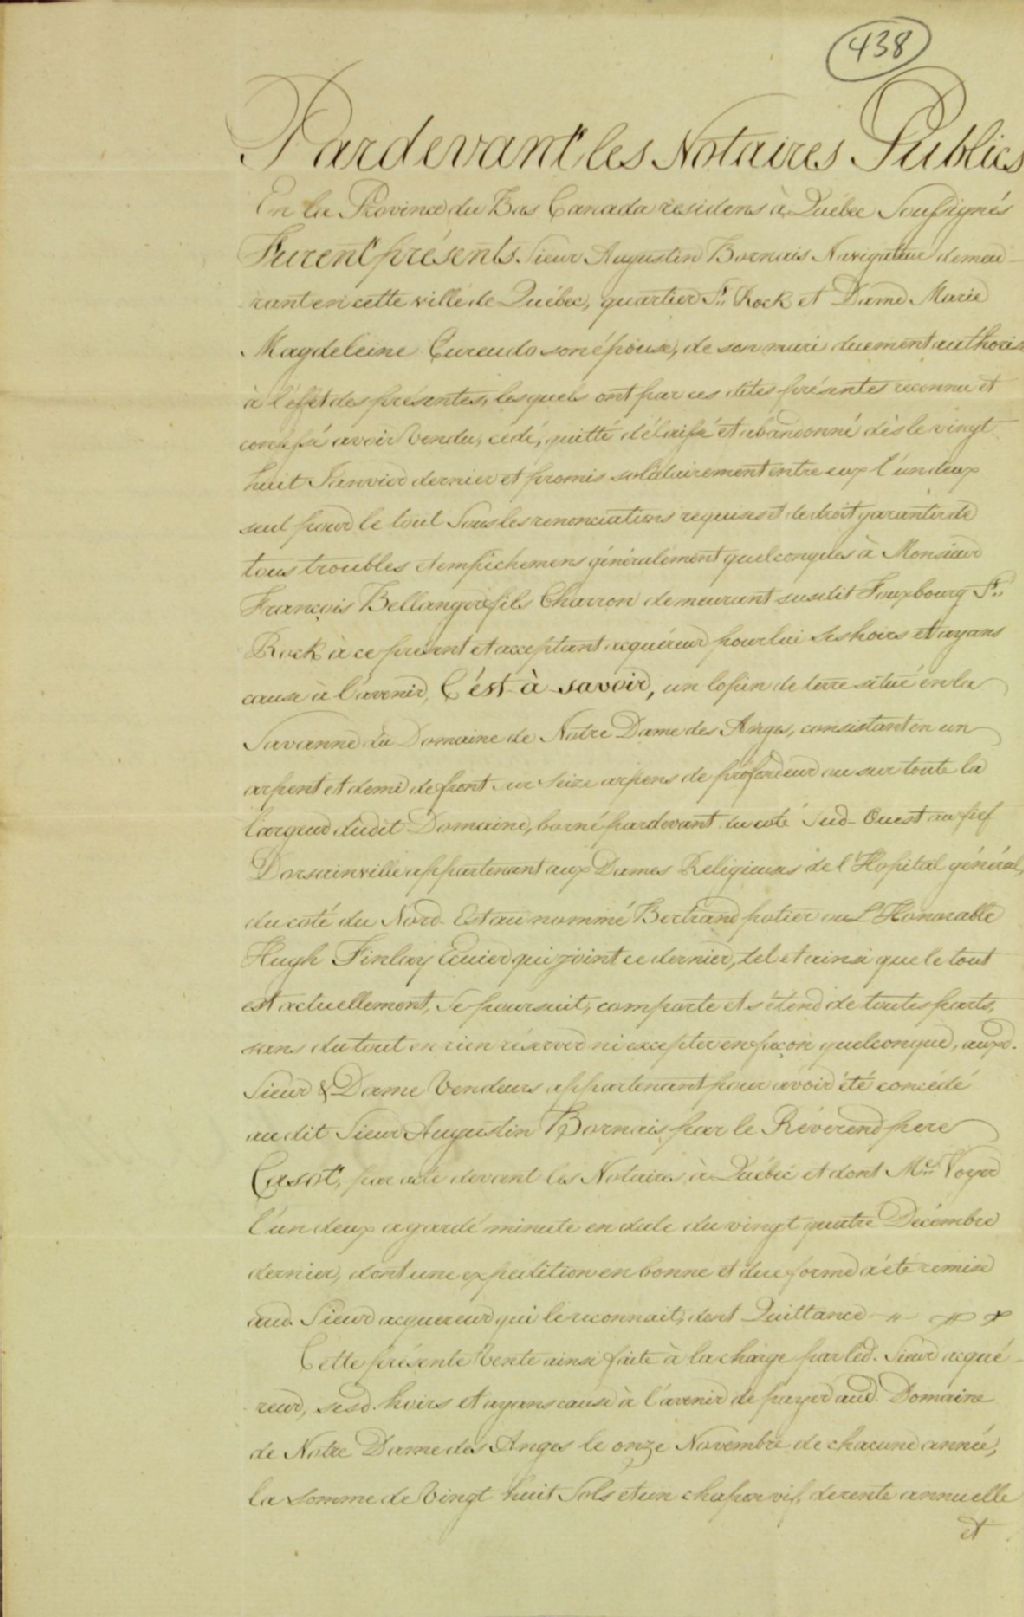 438
Pardevant les Notaires Publics
En la Province du Bas Canada residens à Québec Soussignés
Furent présents Sieur Augustin Bornais Navigateur demeu-
rant en cette ville de Québec, quartier St. Rock et Dame Marie
Magdeleine son épouse, de son mari duement authoris
à l'effet des présentes, lesquels ont par ces dites présentes reconnu et
confessé avoir Vendu, cédé, quitté délaissé et abandonné dès le vingt
huit Janvier dernier et promis solidairement entre eux l'un deux
seul pour le tout Sous les renonciations requises et de droit garantir de
tous troubles et empêchemens généralement quelconques à Monsieur
François Bellanger fils Charron demeurant susdit Fauxbourg St.
Rock à ce présent et acceptant acquéreur pour lui Ses hoirs et ayans
cause à l'avenir, C'ést-à savoir, un lopin de terre situé en la
Savanne du Domaine de Notre Dame des Anges, consistant en un
arpent et demi de front sur Seize arpens de profondeur ou sur toute la
largeur dudit Domaine, borné pardevant du coté Sud-Ouest au fief
Dorsainville appartenant aux Dames Religieuses de l'Hopital général,
du coté du Nord-Est au nommé Bertrand potier ou L'Honorable
Hugh Finlay Ecuier qui joint ce dernier, tel et ainsi que le tout
est actuellement, Se poursuit, comporte et s'étend de toutes parts,
sans du tout en rien réserver ni excepter en façon quelconque, auxd.
Sieur & Dame Vendeurs appartenant pour avoir été concédé
au dit Sieur Augustin Bornais par le Révérend pere
Casot, par acte devant les Notaires à Québec et dont Me. Voyer
l'un deux a gardé minute en date du vingt quatre Décembre
dernier, dont une expédition en bonne et due forme a été remise
aud. Sieur acquereur qui le reconnait, dont Quittance
Cette présente Vente ainsi faite à la charge par led. Sieur acqué-
reur, sesd. hoirs et ayans cause à l'avenir de payer aud. Domaine
de Notre Dame des Anges le onze Novembre de chacune année,
la somme de Vingt huit Sols et un chapon vif, de rente annuelle
et